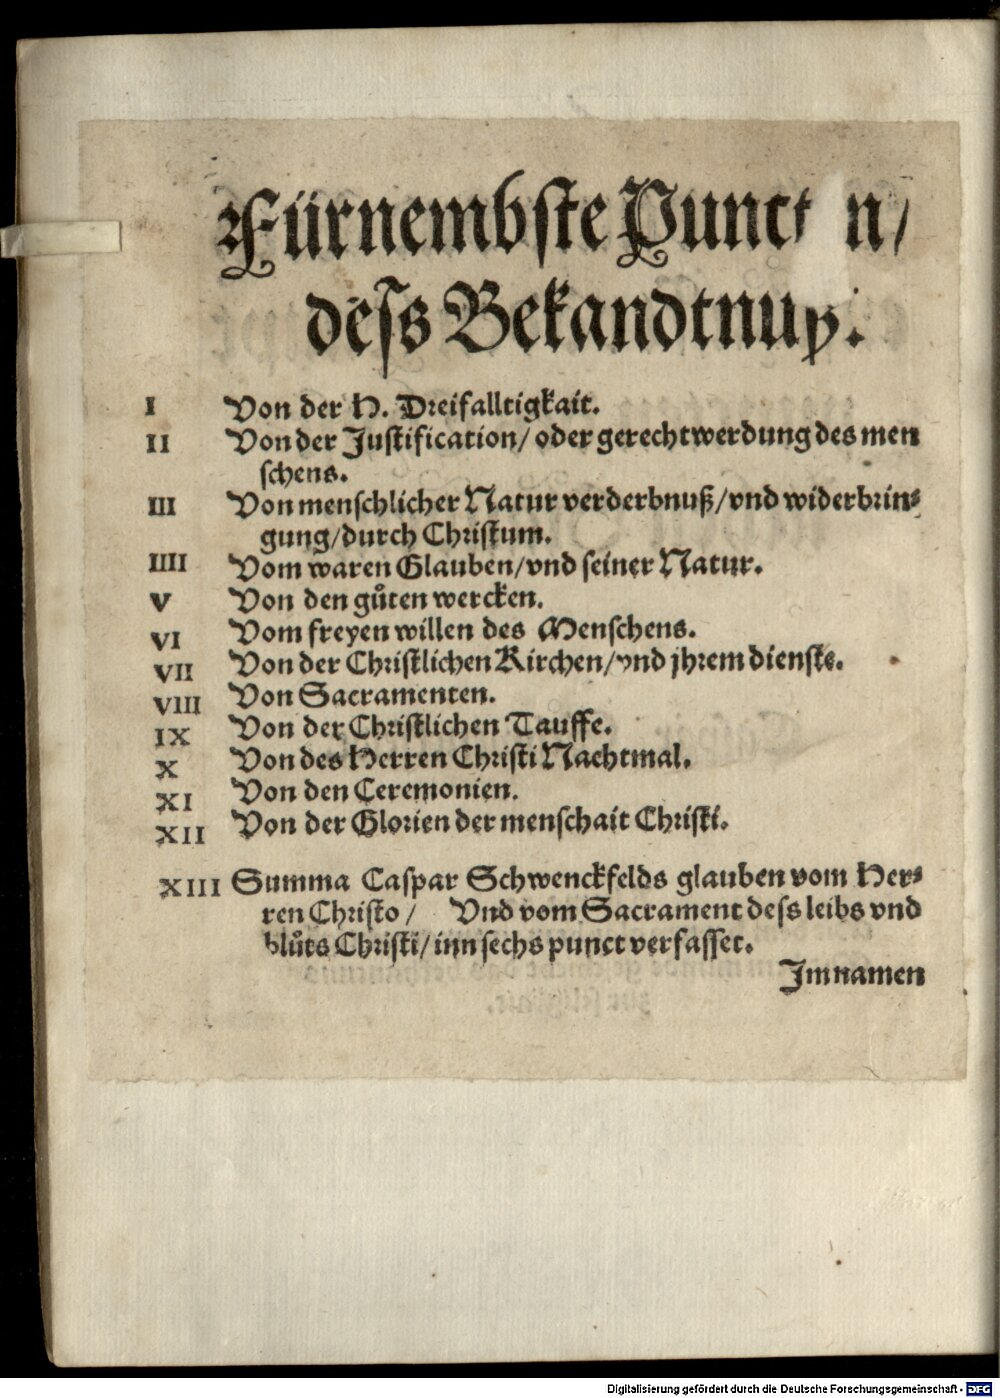 Fürnembste Punct n/
dess Bekandtnuß.
I Von der H. Dreifalltigkait.
II Von der Justification/ oder gerechtwerdung des men
schens.
III Von menschlicher Natur verderbnuß/ vnd widerbrin⸗
gung/ durch Christum.
IIII Vom waren Glauben/ vnd seiner Natur.
V Von den gůten wercken.
VI Vom freyen willen des Menschens.
VII Von der Christlichen Kirchen/ vnd jhrem dienste.
VIII Von Sacramenten.
IX Von der Christlichen Tauffe.
X Von des Herren Christi Nachtmal.
XI Von den Ceremonien.
XII Von der Glorien der menschait Christi.
XIII Summa Caspar Schwenckfelds glauben vom Her⸗
ren Christo / Vnd vom Sacrament dess leibs vnd
blůts Christi/ inn sechs punct verfasset.
Im namen
Digitalisierung gefördert durch die Deutsche Forschungsgemeinschaft - DFG